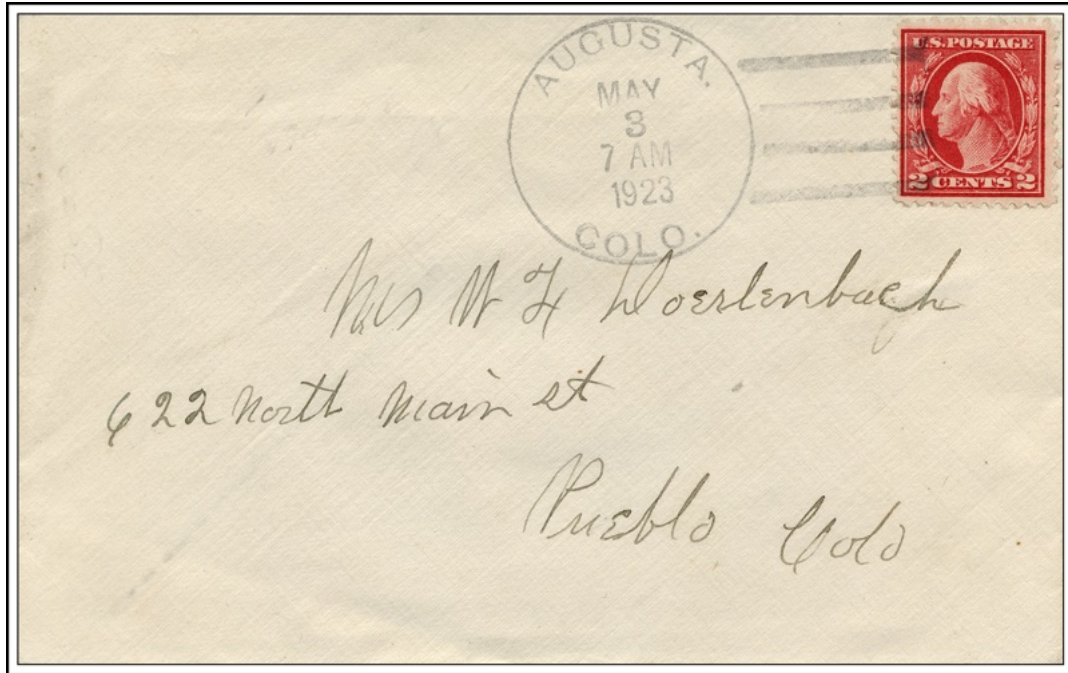 AUGUSTA.
MAY
3
7 AM
1923
COLO.
U.S. POSTAGE
2 CENTS 2
Mrs W F Doerlenbach
622 North Main st
Pueblo Colo